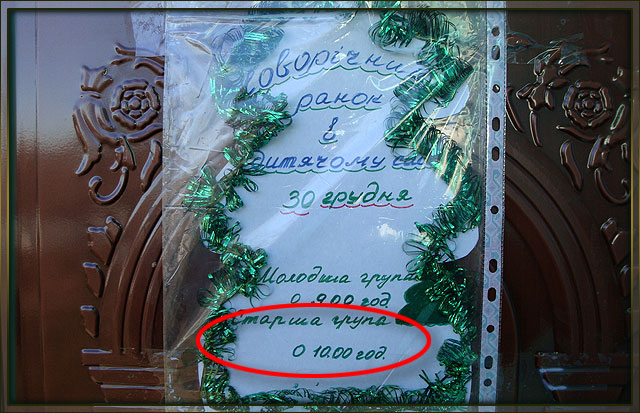 новорічний
ранок
в
дитячому са
30 грудня
Молодша група
о 9.00 год
Старша група
О 10.00 год.